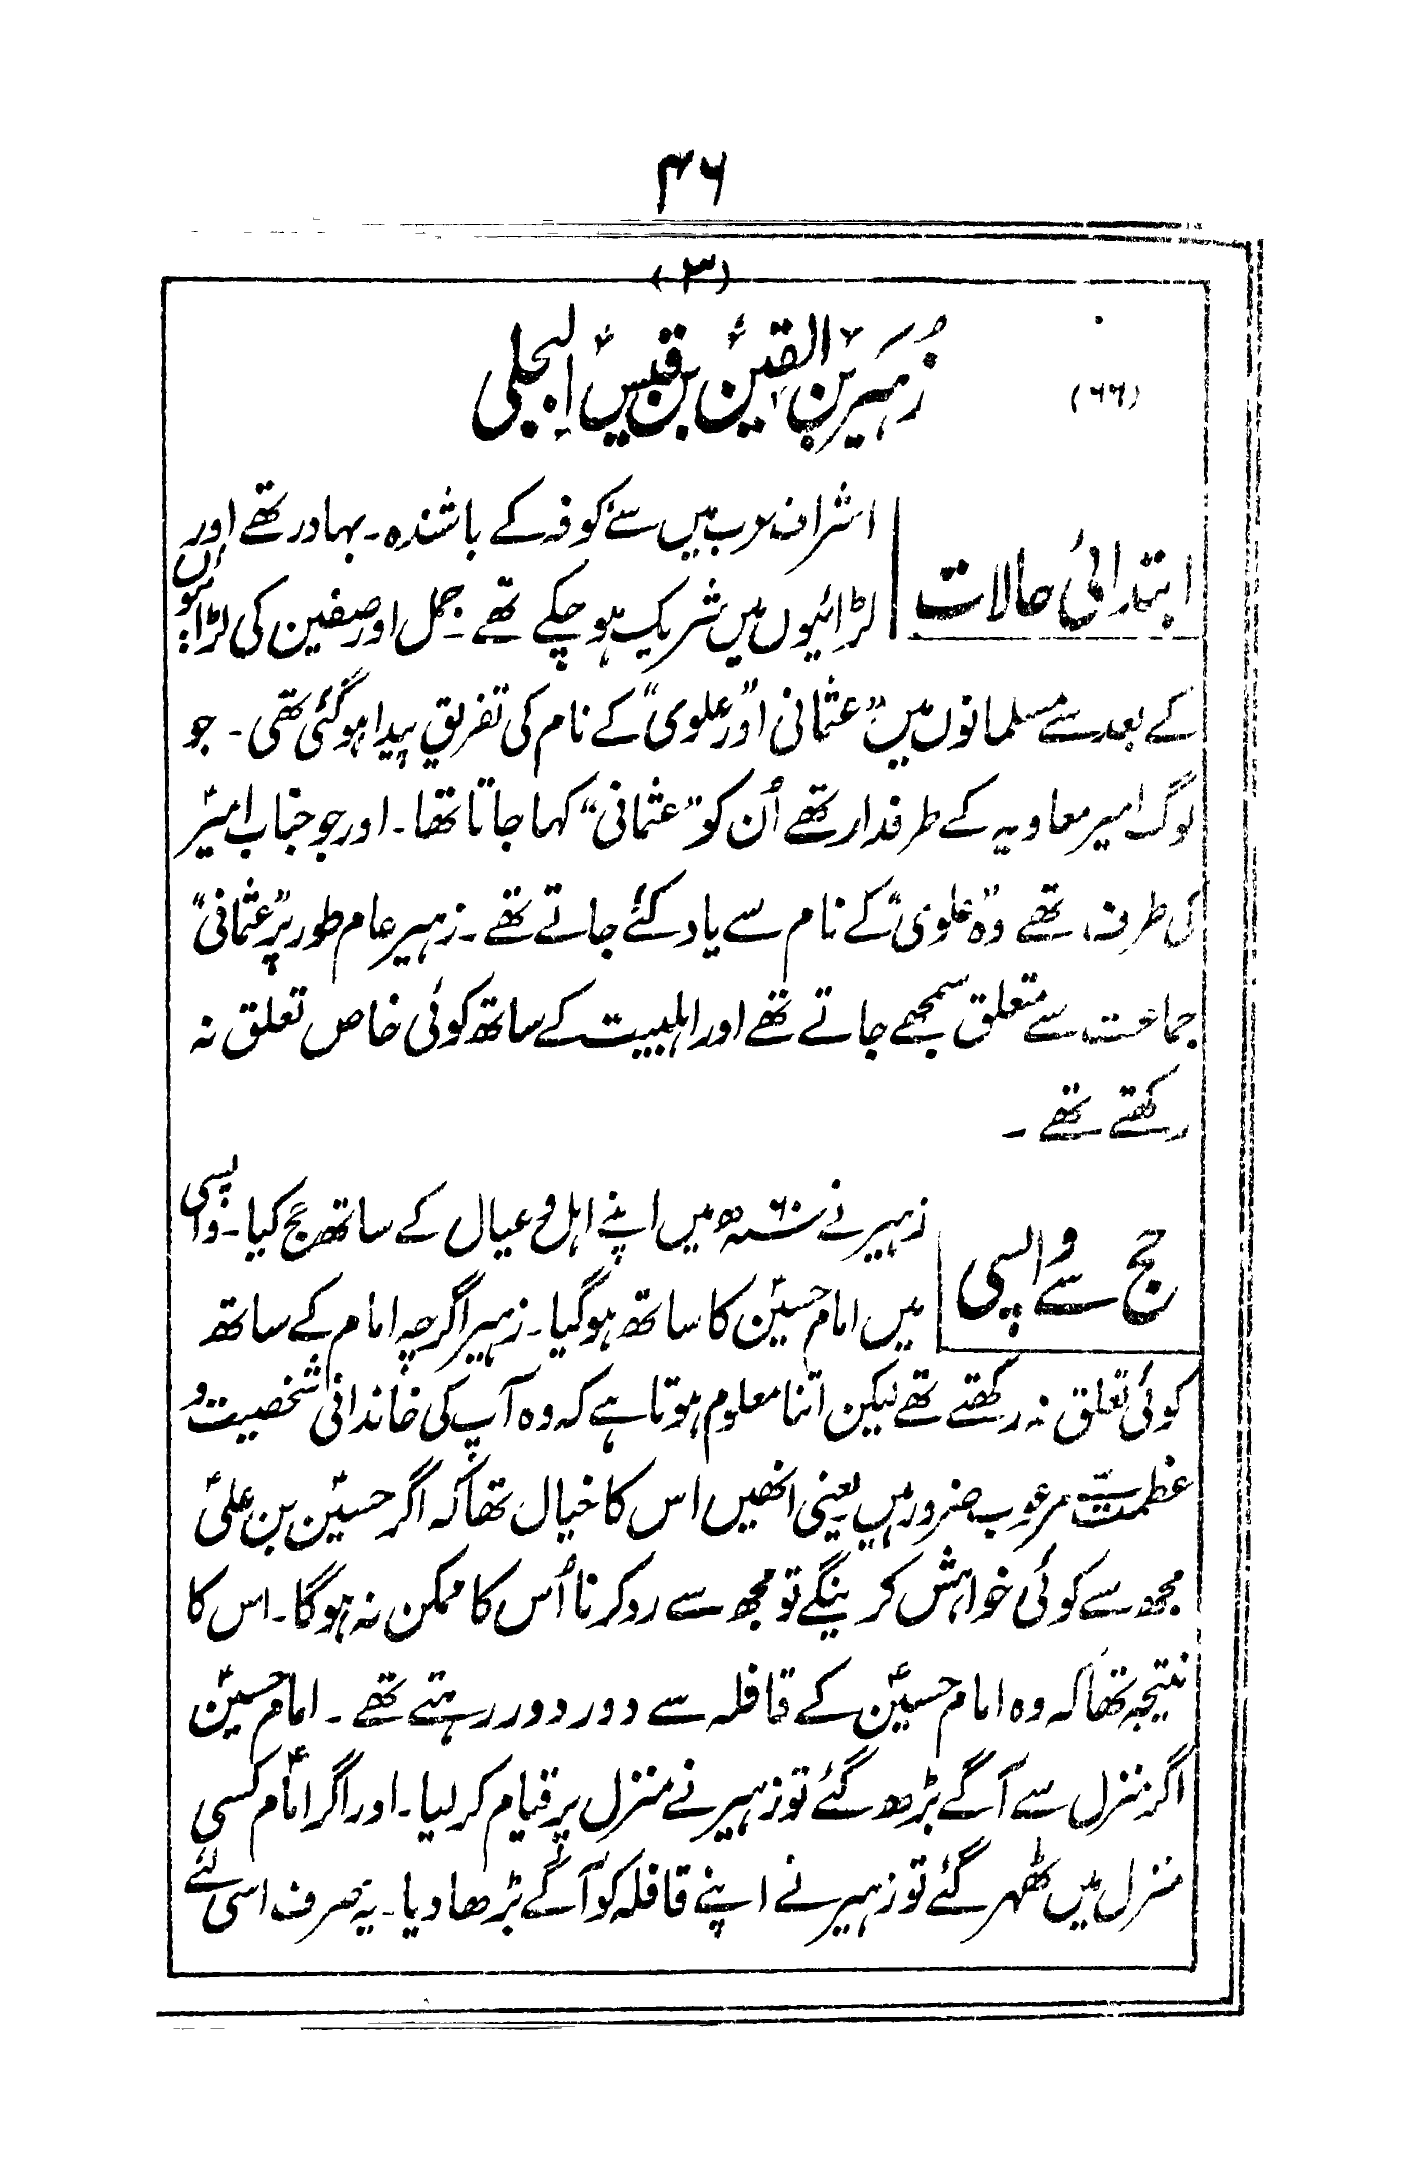 ۴۶
(۳)
(۶۶)
زُہَیر بن القین بن قیس البجلی
ابتدائی حالات
اشراف عرب میں سے کوفہ کے باشندہ۔ بہادر تھے اور
لڑائیوں میں شریک ہو چکے تھے۔ جمل اور صفین کی لڑائیوں
کے بعد سے مسلمانوں میں "عثمانی" اور "علوی" کے نام کی تفریق پیدا ہو گئی تھی۔ جو
لوگ امیر معاویہ کے طرفدار تھے اُن کو "عثمانی" کہا جاتا تھا۔ اور جو جناب امیرؑ
کی طرف تھے وہ "علوی" کے نام سے یاد کئے جاتے تھے۔ زہیر عام طور پر "عثمانی"
جماعت سے متعلق سمجھے جاتے تھے اور اہلبیت کے ساتھ کوئی خاص تعلق نہ
رکھتے تھے۔
حج سے واپسی
زہیر نے ۶۰ھ میں اپنے اہل و عیال کے ساتھ حج کیا۔ واپسی
میں امام حسینؑ کا ساتھ ہو گیا۔ زہیر اگرچہ امام کے ساتھ
کوئی تعلق نہ رکھتے تھے لیکن اتنا معلوم ہوتا ہے کہ وہ آپ کی خاندانی شخصیت و
عظمت سے مرعوب ضرور ہیں یعنی انھیں اس کا خیال تھا کہ اگر حسینؑ بن علیؑ
مجھ سے کوئی خواہش کرینگے تو مجھ سے رد کرنا اُس کا ممکن نہ ہوگا۔ اس کا
نتیجہ تھا کہ وہ امام حسینؑ کے قافلہ سے دور دور رہتے تھے۔ امام حسینؑ
اگر منزل سے آگے بڑھ گئے تو زہیر نے منزل پر قیام کر لیا۔ اور اگر امامؑ کسی
منزل میں ٹھہر گئے تو زہیر نے اپنے قافلہ کو آگے بڑھا دیا۔ یہ صرف اسی لئے